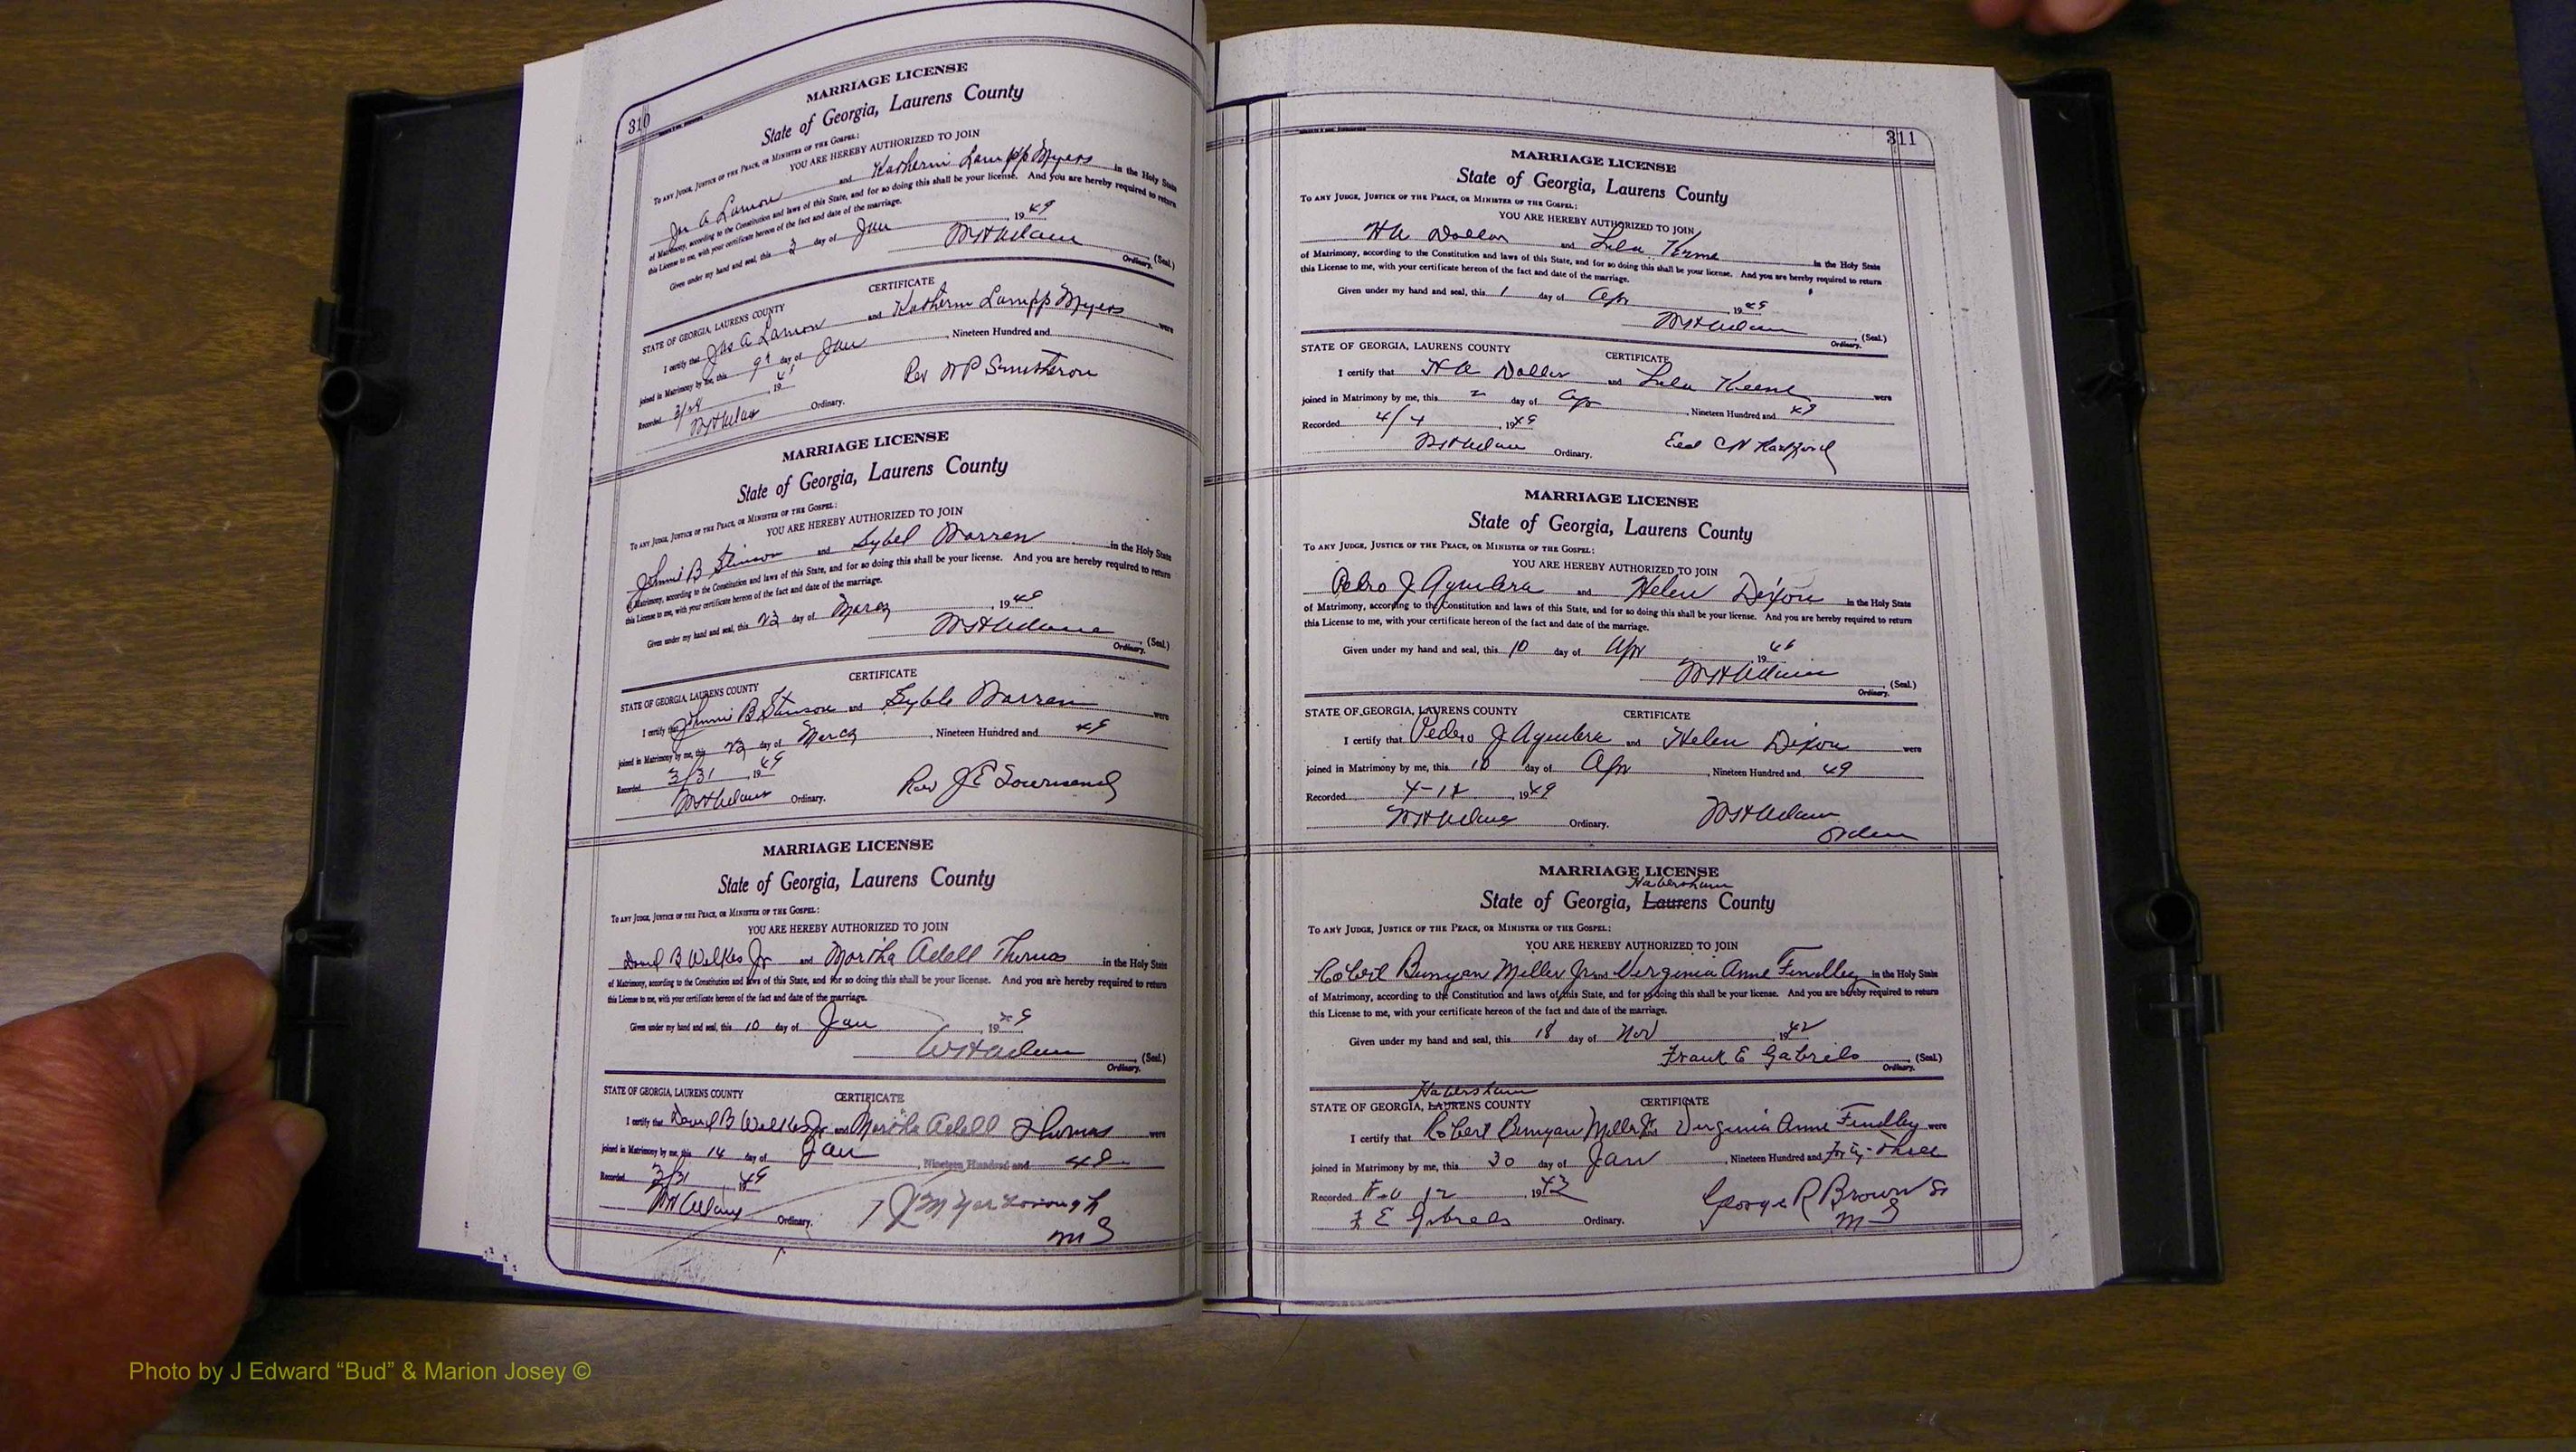 310
MARRIAGE LICENSE
State of Georgia, Laurens County
To any Judge, Justice of the Peace, or Minister of the Gospel:
YOU ARE HEREBY AUTHORIZED TO JOIN
Jas A Lamon and Katherin Lampp Myers in the Holy State
of Matrimony, according to the Constitution and laws of this State, and for so doing this shall be your license. And you are hereby required to return
this License to me, with your certificate hereon of the fact and date of the marriage.
Given under my hand and seal, this 3 day of Jan, 1949
(Seal.)
Ordinary.
CERTIFICATE
STATE OF GEORGIA, LAURENS COUNTY
I certify that Jas A Lamon and Katherin Lampp Myers were
joined in Matrimony by me, this day of Jan, Nineteen Hundred and
Recorded 3/24, 19
Rev W P Smitheron
Ordinary.
MARRIAGE LICENSE
State of Georgia, Laurens County
To any Judge, Justice of the Peace, or Minister of the Gospel:
YOU ARE HEREBY AUTHORIZED TO JOIN
Johnnie B Stinson and Sybel Warren in the Holy State
of Matrimony, according to the Constitution and laws of this State, and for so doing this shall be your license. And you are hereby required to return
this License to me, with your certificate hereon of the fact and date of the marriage.
Given under my hand and seal, this 23 day of March, 1949
(Seal.)
Ordinary.
CERTIFICATE
STATE OF GEORGIA, LAURENS COUNTY
I certify that Johnnie B Stinson and Syble Warren were
joined in Matrimony by me, this 23 day of March, Nineteen Hundred and 49
Recorded 3/31, 1949
Rev J E Townsend
Ordinary.
MARRIAGE LICENSE
State of Georgia, Laurens County
To any Judge, Justice of the Peace, or Minister of the Gospel:
YOU ARE HEREBY AUTHORIZED TO JOIN
David B Wilkes Jr and Martha Adell Thomas in the Holy State
of Matrimony, according to the Constitution and laws of this State, and for so doing this shall be your license. And you are hereby required to return
this License to me, with your certificate hereon of the fact and date of the marriage.
Given under my hand and seal, this 10 day of Jan, 1949
(Seal.)
Ordinary.
STATE OF GEORGIA, LAURENS COUNTY
CERTIFICATE
I certify that David B Wilkes Jr and Martha Adell Thomas were
joined in Matrimony by me, this 14 day of Jan, Nineteen Hundred and 49
Recorded 3/31, 1949
J M Yarborough
Ordinary.
M G
311
MARRIAGE LICENSE
State of Georgia, Laurens County
To any Judge, Justice of the Peace, or Minister of the Gospel:
YOU ARE HEREBY AUTHORIZED TO JOIN
and Lula Keene in the Holy State
of Matrimony, according to the Constitution and laws of this State, and for so doing this shall be your license. And you are hereby required to return
this License to me, with your certificate hereon of the fact and date of the marriage.
Given under my hand and seal, this 1 day of Apr, 1949
(Seal.)
Ordinary.
CERTIFICATE
STATE OF GEORGIA, LAURENS COUNTY
I certify that and Lula Keene were
joined in Matrimony by me, this 2 day of Apr, Nineteen Hundred and 49
Recorded 4/4, 1949
Ordinary.
MARRIAGE LICENSE
State of Georgia, Laurens County
To any Judge, Justice of the Peace, or Minister of the Gospel:
YOU ARE HEREBY AUTHORIZED TO JOIN
Pedro J Aguilera and Helen Dixon in the Holy State
of Matrimony, according to the Constitution and laws of this State, and for so doing this shall be your license. And you are hereby required to return
this License to me, with your certificate hereon of the fact and date of the marriage.
Given under my hand and seal, this 10 day of Apr, 19
(Seal.)
Ordinary.
STATE OF GEORGIA, LAURENS COUNTY
CERTIFICATE
I certify that Pedro J Aguilera and Helen Dixon were
joined in Matrimony by me, this 10 day of Apr, Nineteen Hundred and 49
Recorded 4-12, 1949
Ordinary.
MARRIAGE LICENSE
Habersham
State of Georgia, Laurens County
To any Judge, Justice of the Peace, or Minister of the Gospel:
YOU ARE HEREBY AUTHORIZED TO JOIN
Robert Bunyan Miller Jr and Virginia Anne Findley in the Holy State
of Matrimony, according to the Constitution and laws of this State, and for so doing this shall be your license. And you are hereby required to return
this License to me, with your certificate hereon of the fact and date of the marriage.
Given under my hand and seal, this 18 day of Nov, 1942
Frank E Gabriels (Seal.)
Ordinary.
Habersham
STATE OF GEORGIA, LAURENS COUNTY
CERTIFICATE
I certify that Robert Bunyan Miller Jr and Virginia Anne Findley were
joined in Matrimony by me, this 30 day of Jan, Nineteen Hundred and Forty-Three
Recorded Feb 12, 1943
George R Brown Sr
F E Gabriels Ordinary.
M G
Photo by J Edward “Bud” & Marion Josey ©